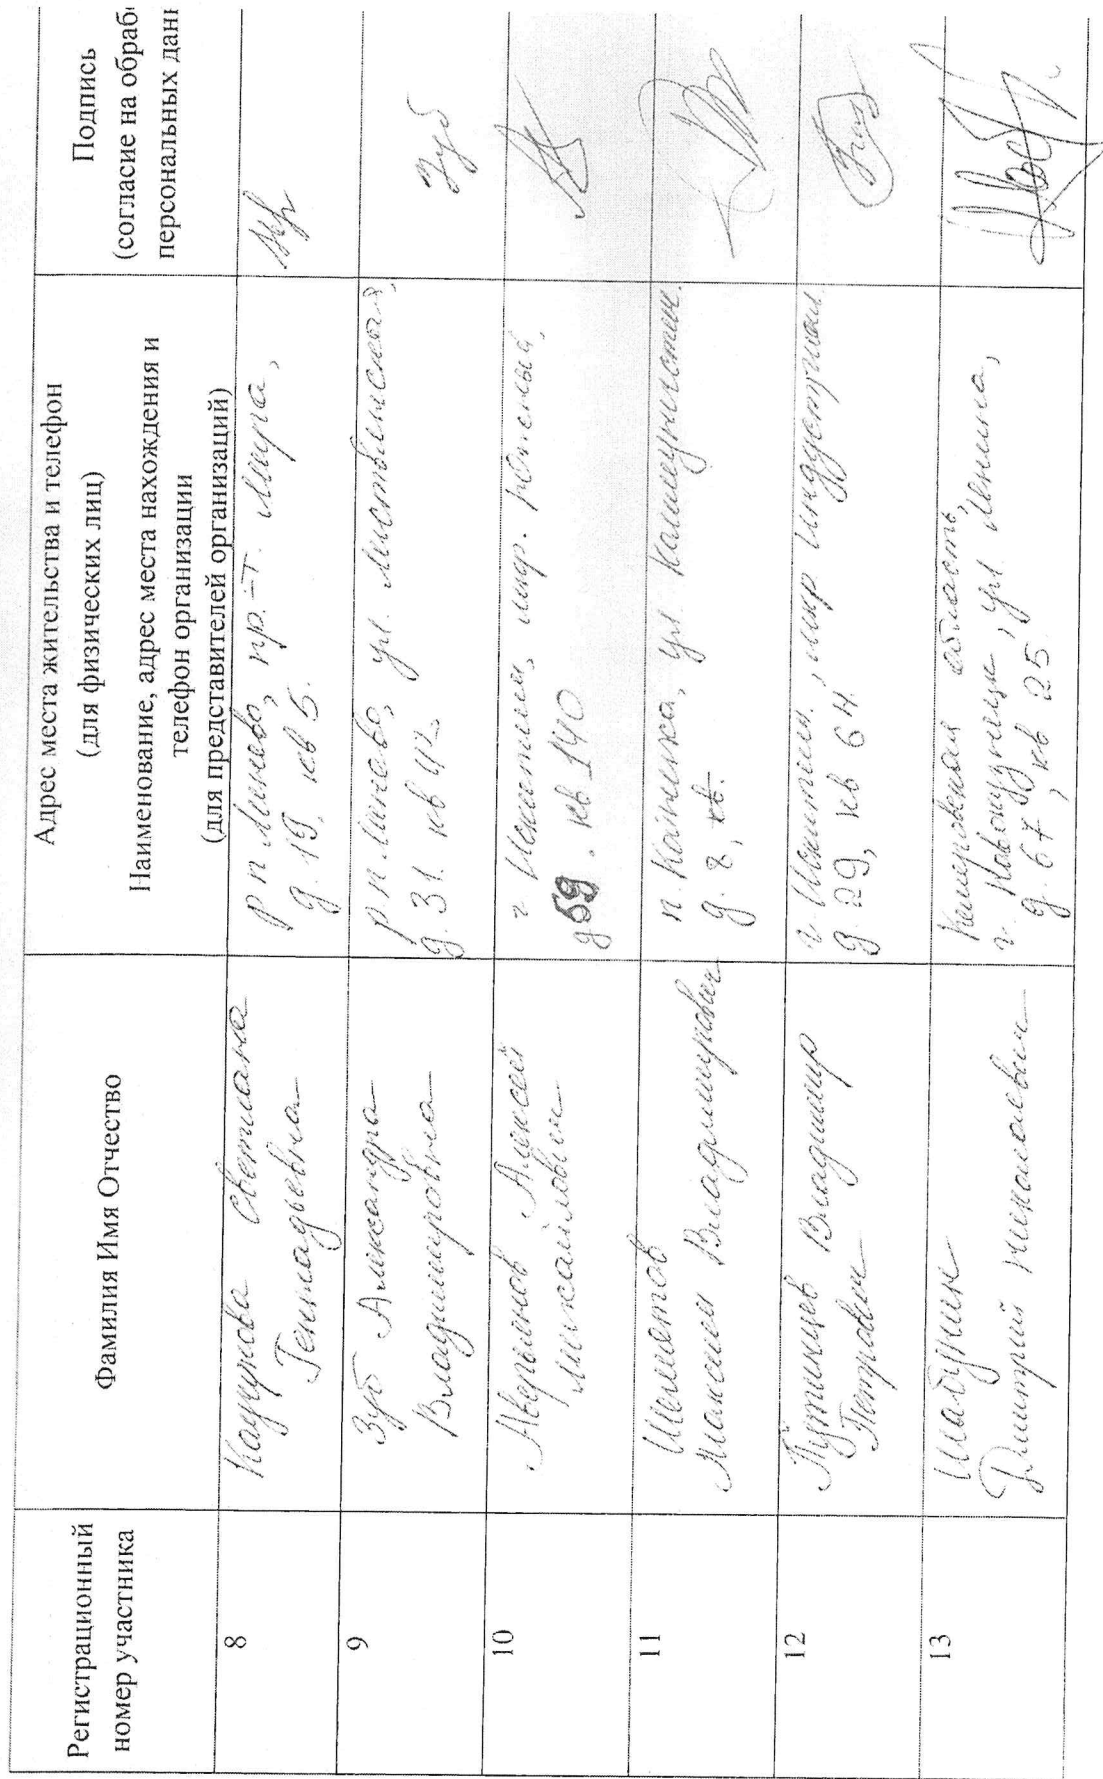 Регистрационный
номер участника
Фамилия Имя Отчество
Адрес места жительства и телефон
(для физических лиц)
Наименование, адрес места нахождения и
телефон организации
(для представителей организаций)
Подпись
(согласие на обраб
персональных дан
8
Светлана
Геннадьевна
р п Линево, пр.-т. Мира,
д. 19, кв 5.
9
Зуб Александра
Владимировна
р п Линево, ул. Листвянская,
д. 31. кв 42.
Зуб
10
Аверьянов Алексей
Михайлович
г Искитим, мкр. Южный,
д 59. кв 140
11
Шеметов
Максим Владимирович
п. Койниха, ул. Коммунистич.
д. 8, кв.
12
Путинцев Владимир
Петрович
г. Искитим, мкр Индустриал.
д. 29, кв 64
13
Шабунин
Дмитрий Николаевич
Кемеровская область,
г. Новокузнецк, ул Ленина,
д. 67, кв 25